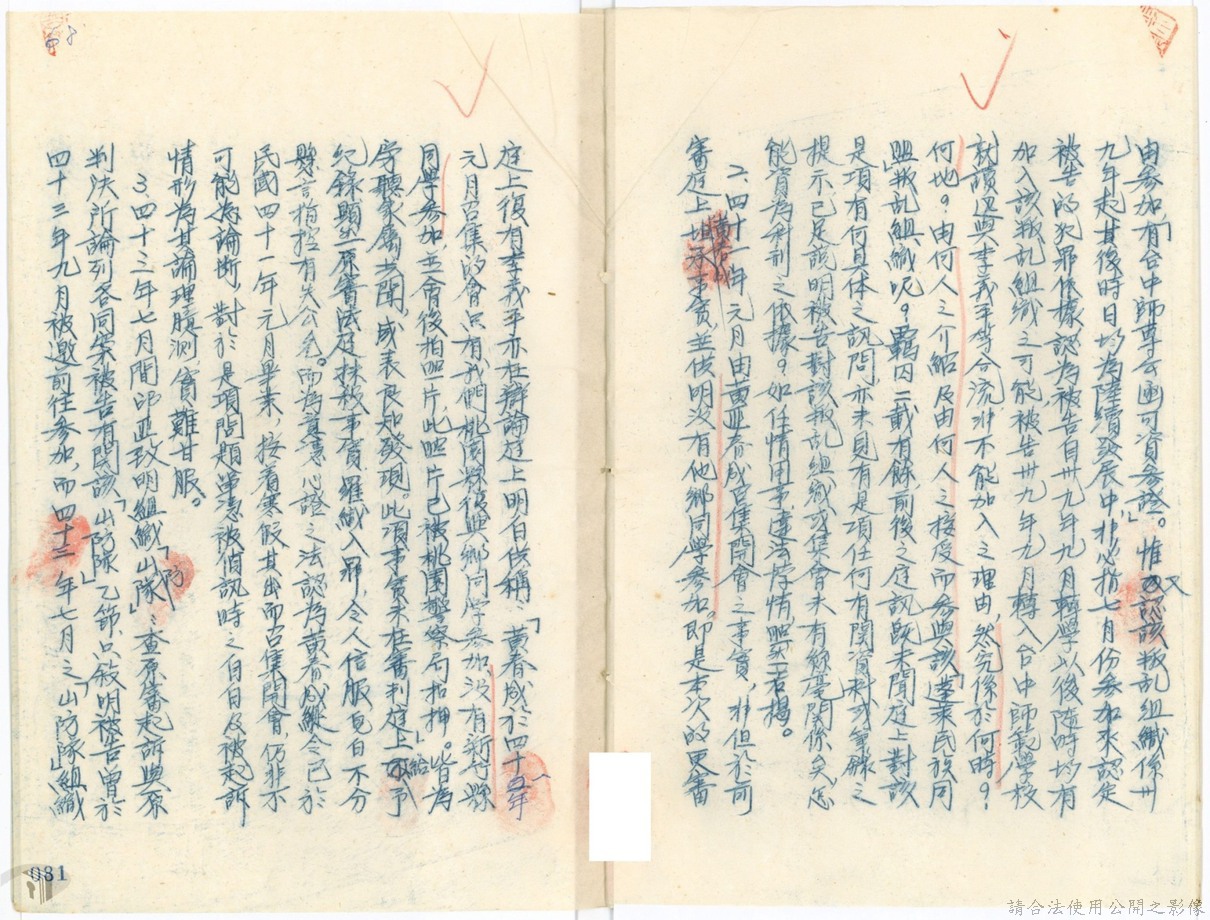 由參加「有台中師尊合画可資參證。」惟又該叛乱組織係卅
九年起其後時日均為陸續發展中非必指七月份參加來認定
被告的犯罪依據認為被告自卅九年九月轉學以後隨時均有
加入該叛乱組織之可能被告卅九年九月轉入台中師範學校
就讀迴與李義平等合流非不能加入之理由,然究係於何時?
何地?由何人之介紹及由何人之接受而參與該「蓬萊民族同
盟」叛乱組織呢?羈囚二載有餘前後之庭訊既未聞庭上對該
是項有何具体之訊問亦未見有是項任何有関資料或筆錄之
提示已足說明被告對該叛乱組織或集會未有餘毫関係矣怎
能資為判刑之依據。如任情用事違法悖情,照然若揭。
2、四十一年元月由黃春成召集開會之事實,非但於可
審庭上坦承事實,並供明没有他鄉同學參加。即是本次的更審
庭上復有李義平亦在辯論庭上明白供稱:「黃春成於四十一年
元月召集的會只有我們桃園縣復興鄉同學參加,没有新竹縣
同學參加,並會後拍照片,此照片已被桃園警察局扣押。」皆為
旁聽家屬共聞,咸表良知發現。此項事實未在審判庭上給予
紀錄顯出原審法庭抹殺事實,羅織入罪,令人信服?自不分
縣言指控有失公允。而為真意心證之法認為黃春成縱令已於
民國四十一年元月畢業,按着寒假其出而召集開會,仍非不
可能為論断,對於是項問題單憑被偵訊時之自白及被起訴
情形為其論理臆測,實難甘服。
3、四十三年七月間印匪致明組織「山防隊」:查原審起訴與原
判決所論列各同案被告有関該「山防隊」乙節,只敘明被告曾於
四十三年九月被邀前往參加,而四十三年七月之「山防隊」組織
081
請合法使用公開之影像